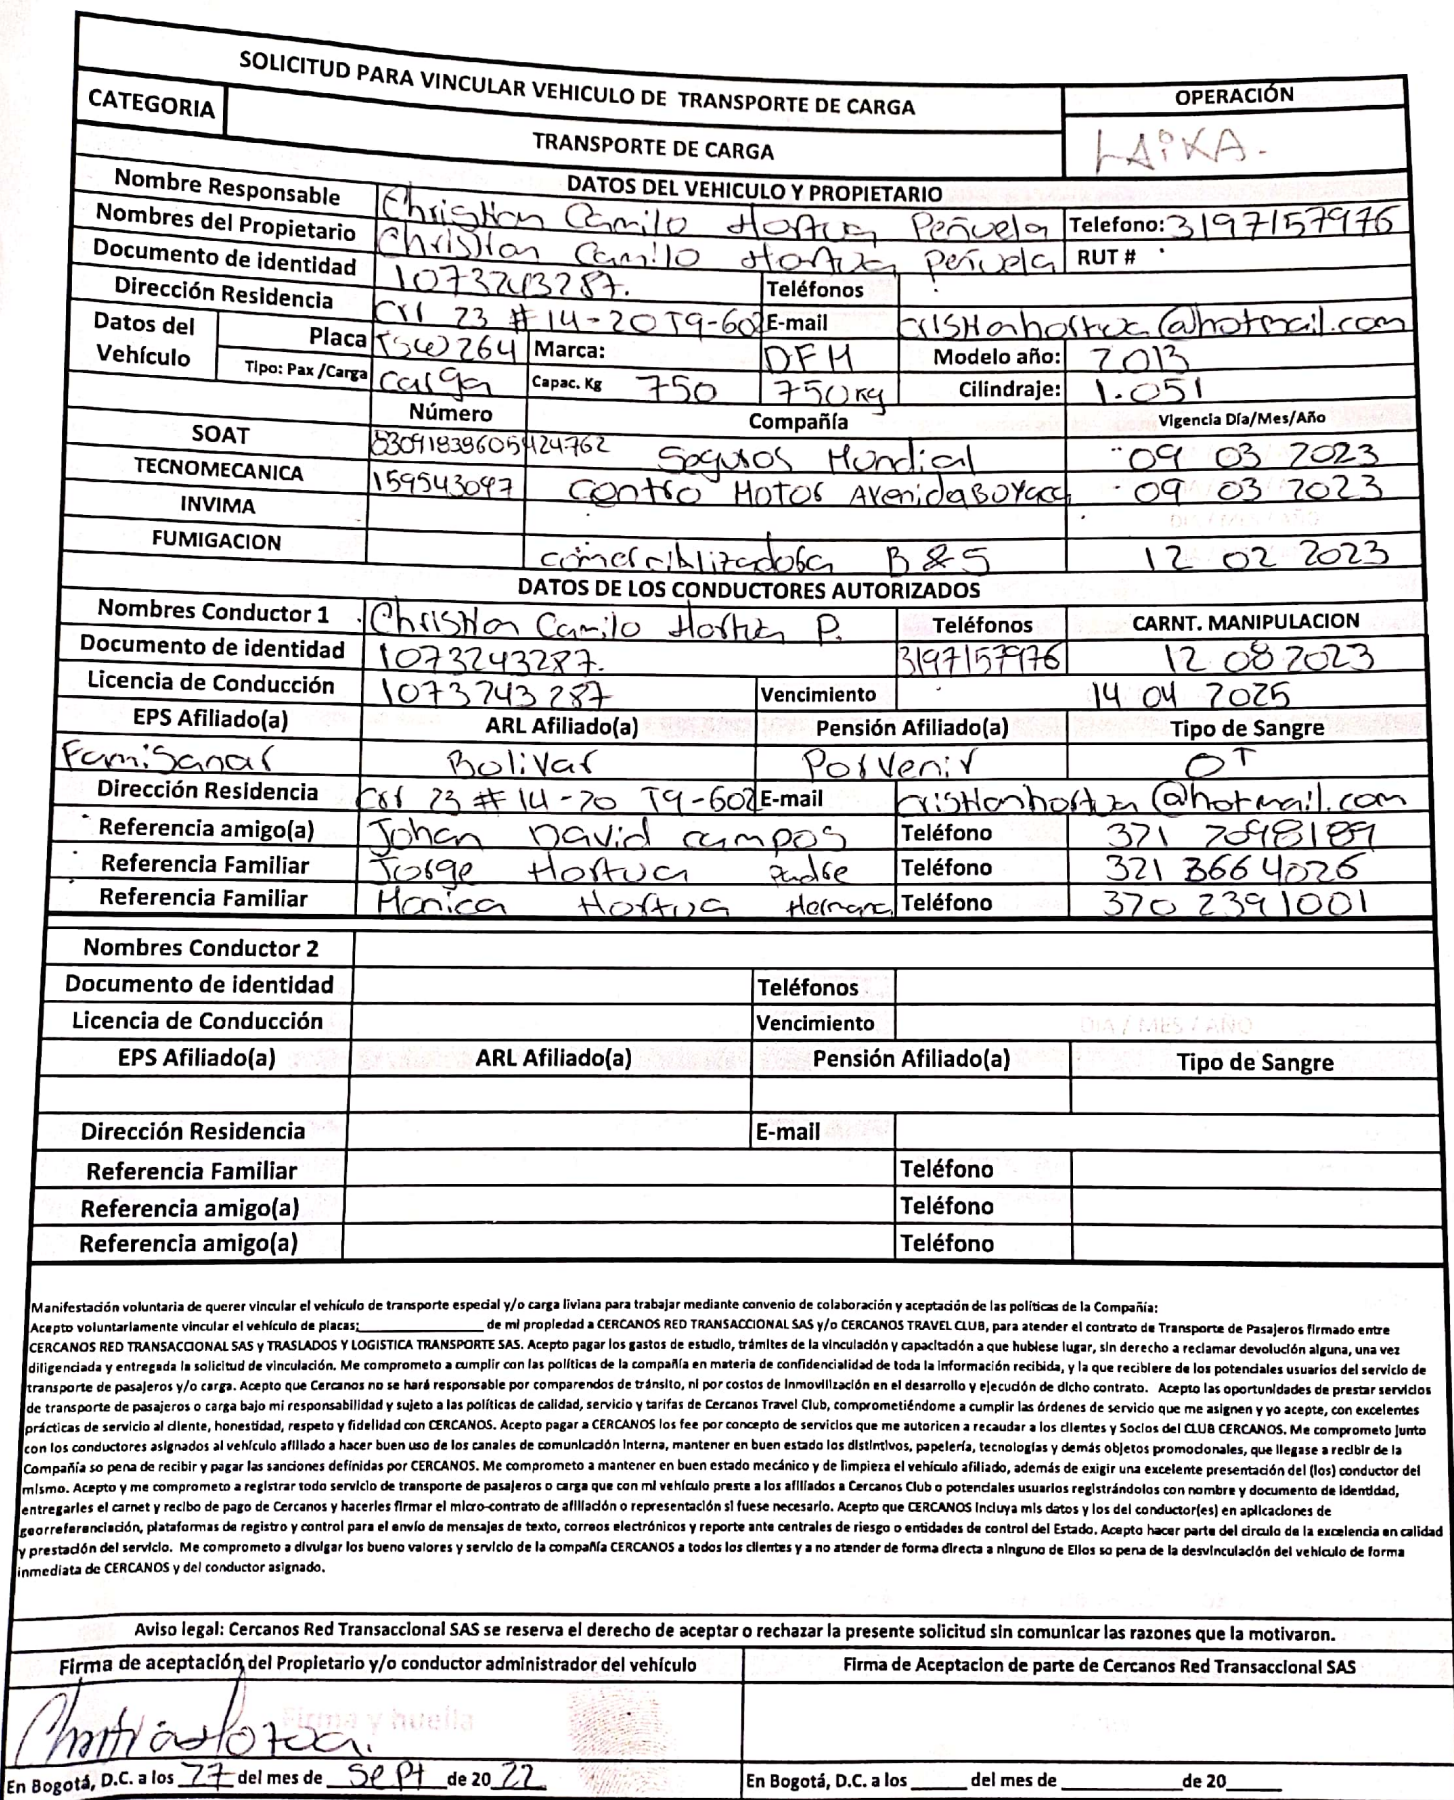 SOLICITUD PARA VINCULAR VEHICULO DE TRANSPORTE DE CARGA OPERACIÓN
CATEGORIA TRANSPORTE DE CARGA LAIKA.
DATOS DEL VEHICULO Y PROPIETARIO
Nombre Responsable Christian Camilo Hortua Peñuela Telefono: 3197157976
Nombres del Propietario Christian Camilo Hortua Peñuela RUT #
Documento de identidad 1073243287. Teléfonos
Dirección Residencia Crr 23 # 14-20 T9-602 E-mail cristianhortua@hotmail.com
Datos del Vehículo Placa TSW264 Marca: DFM Modelo año: 2013
Tipo: Pax /Carga carga Capac. Kg 750 750kg Cilindraje: 1.051
Número Compañía Vigencia Día/Mes/Año
SOAT 83091838605424762 Seguros Mundial 09 03 2023
TECNOMECANICA 159543097 Centro Motor Avenida Boyaca 09 03 2023
INVIMA DIA / MES / AÑO
FUMIGACION comerciblizadora B & S 12 02 2023
DATOS DE LOS CONDUCTORES AUTORIZADOS
Nombres Conductor 1 Christian Camilo Hortua P. Teléfonos CARNT. MANIPULACION
Documento de identidad 1073243287. 3197157976 12 08 2023
Licencia de Conducción 1073243287 Vencimiento 14 04 2025
EPS Afiliado(a) ARL Afiliado(a) Pensión Afiliado(a) Tipo de Sangre
Famisanar Bolivar Porvenir O+
Dirección Residencia Crr 23 # 14-20 T9-602 E-mail cristianhortua@hotmail.com
Referencia amigo(a) Johan David campos Teléfono 321 2098189
Referencia Familiar Jorge Hortua Padre Teléfono 321 3664026
Referencia Familiar Monica Hortua Hermana Teléfono 320 2391001
Nombres Conductor 2
Documento de identidad Teléfonos
Licencia de Conducción Vencimiento DIA / MES / AÑO
EPS Afiliado(a) ARL Afiliado(a) Pensión Afiliado(a) Tipo de Sangre
Dirección Residencia E-mail
Referencia Familiar Teléfono
Referencia amigo(a) Teléfono
Referencia amigo(a) Teléfono
Manifestación voluntaria de querer vincular el vehículo de transporte especial y/o carga liviana para trabajar mediante convenio de colaboración y aceptación de las políticas de la Compañía:
Acepto voluntariamente vincular el vehículo de placas:______________ de mi propiedad a CERCANOS RED TRANSACCIONAL SAS y/o CERCANOS TRAVEL CLUB, para atender el contrato de Transporte de Pasajeros firmado entre
CERCANOS RED TRANSACCIONAL SAS y TRASLADOS Y LOGISTICA TRANSPORTE SAS. Acepto pagar los gastos de estudio, trámites de la vinculación y capacitación a que hubiese lugar, sin derecho a reclamar devolución alguna, una vez
diligenciada y entregada la solicitud de vinculación. Me comprometo a cumplir con las políticas de la compañía en materia de confidencialidad de toda la información recibida, y la que recibiere de los potenciales usuarios del servicio de
transporte de pasajeros y/o carga. Acepto que Cercanos no se hará responsable por comparendos de tránsito, ni por costos de inmovilización en el desarrollo y ejecución de dicho contrato. Acepto las oportunidades de prestar servicios
de transporte de pasajeros o carga bajo mi responsabilidad y sujeto a las políticas de calidad, servicio y tarifas de Cercanos Travel Club, comprometiéndome a cumplir las órdenes de servicio que me asignen y yo acepte, con excelentes
prácticas de servicio al cliente, honestidad, respeto y fidelidad con CERCANOS. Acepto pagar a CERCANOS los fee por concepto de servicios que me autoricen a recaudar a los clientes y Socios del CLUB CERCANOS. Me comprometo junto
con los conductores asignados al vehículo afiliado a hacer buen uso de los canales de comunicación interna, mantener en buen estado los distintivos, papelería, tecnologías y demás objetos promocionales, que llegase a recibir de la
Compañía so pena de recibir y pagar las sanciones definidas por CERCANOS. Me comprometo a mantener en buen estado mecánico y de limpieza el vehículo afiliado, además de exigir una excelente presentación del (los) conductor del
mismo. Acepto y me comprometo a registrar todo servicio de transporte de pasajeros o carga que con mi vehículo preste a los afiliados a Cercanos Club o potenciales usuarios registrándolos con nombre y documento de identidad,
entregarles el carnet y recibo de pago de Cercanos y hacerles firmar el micro-contrato de afiliación o representación si fuese necesario. Acepto que CERCANOS incluya mis datos y los del conductor(es) en aplicaciones de
georreferenciación, plataformas de registro y control para el envío de mensajes de texto, correos electrónicos y reporte ante centrales de riesgo o entidades de control del Estado. Acepto hacer parte del circulo de la excelencia en calidad
y prestación del servicio. Me comprometo a divulgar los bueno valores y servicio de la compañía CERCANOS a todos los clientes y a no atender de forma directa a ninguno de Ellos so pena de la desvinculación del vehículo de forma
inmediata de CERCANOS y del conductor asignado.
Aviso legal: Cercanos Red Transaccional SAS se reserva el derecho de aceptar o rechazar la presente solicitud sin comunicar las razones que la motivaron.
Firma de aceptación del Propietario y/o conductor administrador del vehículo Firma de Aceptacion de parte de Cercanos Red Transaccional SAS
Firma y huella
En Bogotá, D.C. a los 27 del mes de Sept de 2022 En Bogotá, D.C. a los _____ del mes de __________ de 20_____